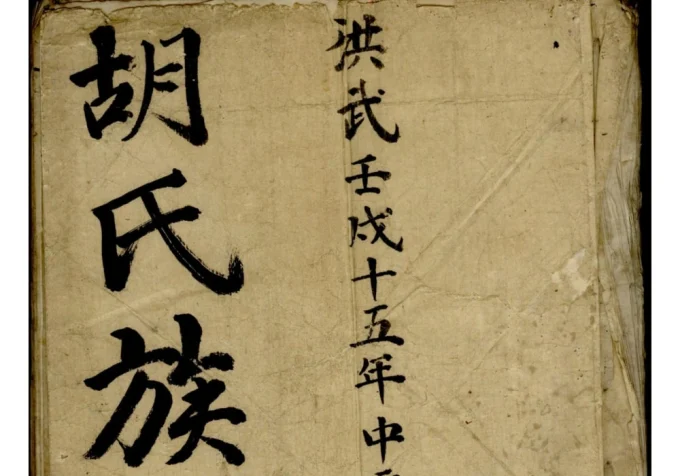 洪武壬戌十五年中
胡氏族